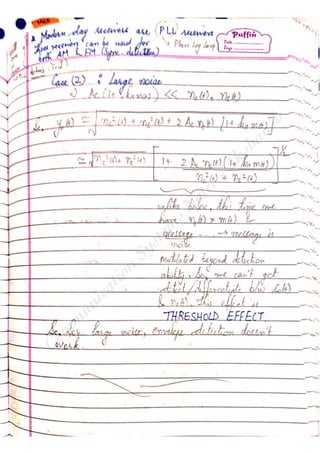 * Modern day receivers are PLL receivers
These receivers can be used for
both AM & FM (Sync. detection)
→ Phase Log Loop
Puffin
Date
Page
Case (2) : large noise
Ac(1+ka m(t)) << nc(t), ns(t)
So, y(t) ≅ √ nc²(t) + ns²(t) + 2 Ac nc(t) [1+ ka m(t)]
≅ √ nc²(t) + ns²(t) [ 1 + 2 Ac nc(t) (1+ ka m(t)) / nc²(t) + ns²(t) ]^1/2
unlike before, this time we
have nc(t) × m(t) &
message → message is
noise
mutilated beyond detection
ability. So, we can't get
detect/differentiate b/w
This effect is
THRESHOLD EFFECT.
So, for large noise, envelope detection doesn't
work.